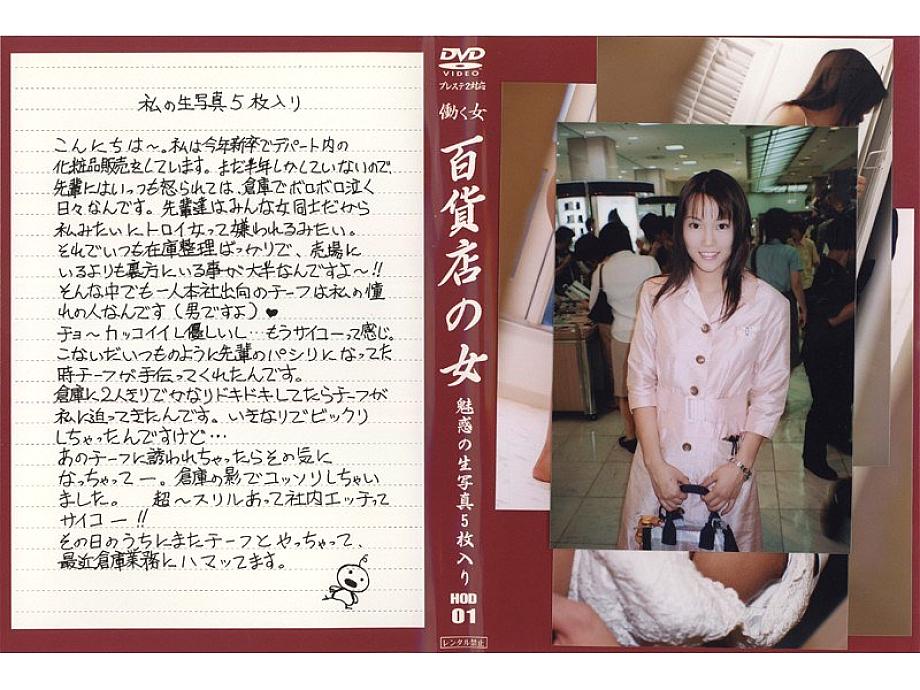 私の生写真5枚入り
こんにちは〜。私は今年新卒でデパート内の
化粧品販売をしています。まだ半年しかしていないので、
先輩にはいつも怒られては、倉庫でボロボロ泣く
日々なんです。先輩達はみんな女同士だから
私みたいにトロイ女って嫌われるみたい。
それでいつも在庫整理ばっかりで、売場に
いるよりも裏方にいる事が大半なんですよ〜!!
そんな中でも一人本社出向のチーフは私の憧
れの人なんです(男ですよ)♥
チョ〜カッコイイし優しいし…もうサイコーって感じ。
こないだいつものように先輩のパシリになってた
時チーフが手伝ってくれたんです。
倉庫に2人きりでかなりドキドキしてたらチーフが
私に迫ってきたんです。いきなりでビックリ
しちゃったんですけど…
あのチーフに誘われちゃったらその気に
なっちゃってー。倉庫の影でコッソリしちゃい
ました。 超〜スリルあって社内エッチって
サイコー!!
その日のうちにまたチーフとやっちゃって、
最近倉庫業務にハマッてます。
DVD
VIDEO
プレステ2対応
働く女
百貨店の女
魅惑の生写真5枚入り
HOD
01
レンタル禁止